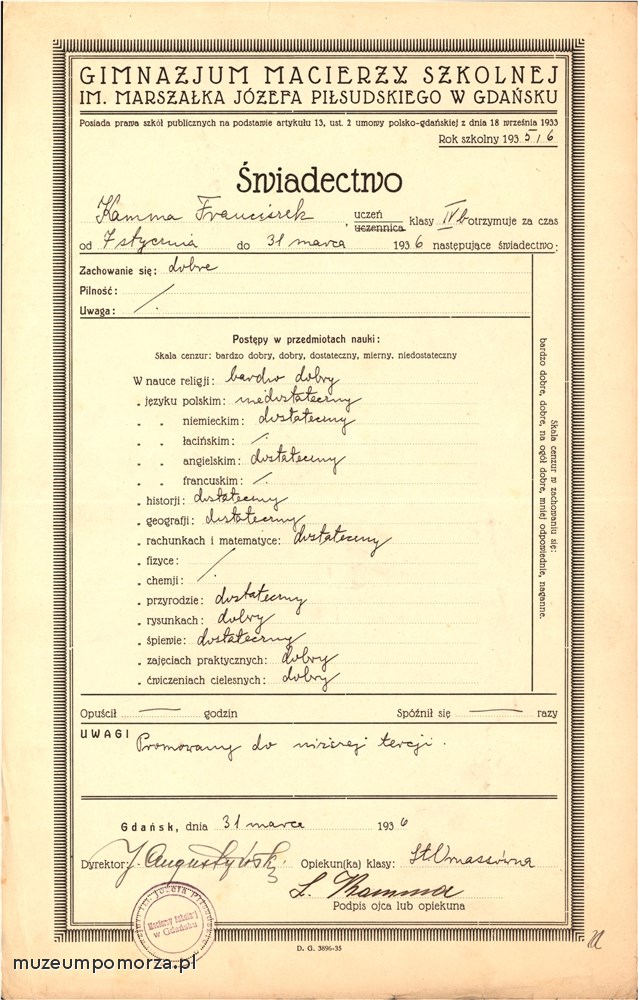 GIMNAZJUM MACIERZY SZKOLNEJ
IM. MARSZAŁKA JÓZEFA PIŁSUDSKIEGO W GDAŃSKU
Posiada prawa szkół publicznych na podstawie artykułu 13, ust. 2 umowy polsko-gdańskiej z dnia 18 września 1933
Rok szkolny 1935/6
Świadectwo
Kamma Franciszek uczeń uczennica klasy IV b otrzymuje za czas
od 7 stycznia do 31 marca 1936 następujące świadectwo:
Zachowanie się: dobre
Pilność:
Uwaga: /.
Postępy w przedmiotach nauki:
Skala cenzur: bardzo dobry, dobry, dostateczny, mierny, niedostateczny
W nauce religji: bardzo dobry
„ języku polskim: niedostateczny
„ „ niemieckim: dostateczny
„ „ łacińskim: /.
„ „ angielskim: dostateczny
„ „ francuskim: /.
„ historji: dostateczny
„ geografji: dostateczny
„ rachunkach i matematyce: dostateczny
„ fizyce:
„ chemji: /.
„ przyrodzie: dostateczny
„ rysunkach: dobry
„ śpiewie: dostateczny
„ zajęciach praktycznych: dobry
„ ćwiczeniach cielesnych: dobry
Skala cenzur w zachowaniu się:
bardzo dobre, dobre, na ogół dobre, mniej odpowiednie, naganne.
Opuścił — godzin Spóźnił się — razy
UWAGI Promowany do niższej tercji.
Gdańsk, dnia 31 marca 1936
Dyrektor: J. Augustyński Opiekun(ka) klasy:
Ł. Kamma
Podpis ojca lub opiekuna
Macierzy Szkolnej
w Gdańsku
D. G. 3896-35
muzeumpomorza.pl